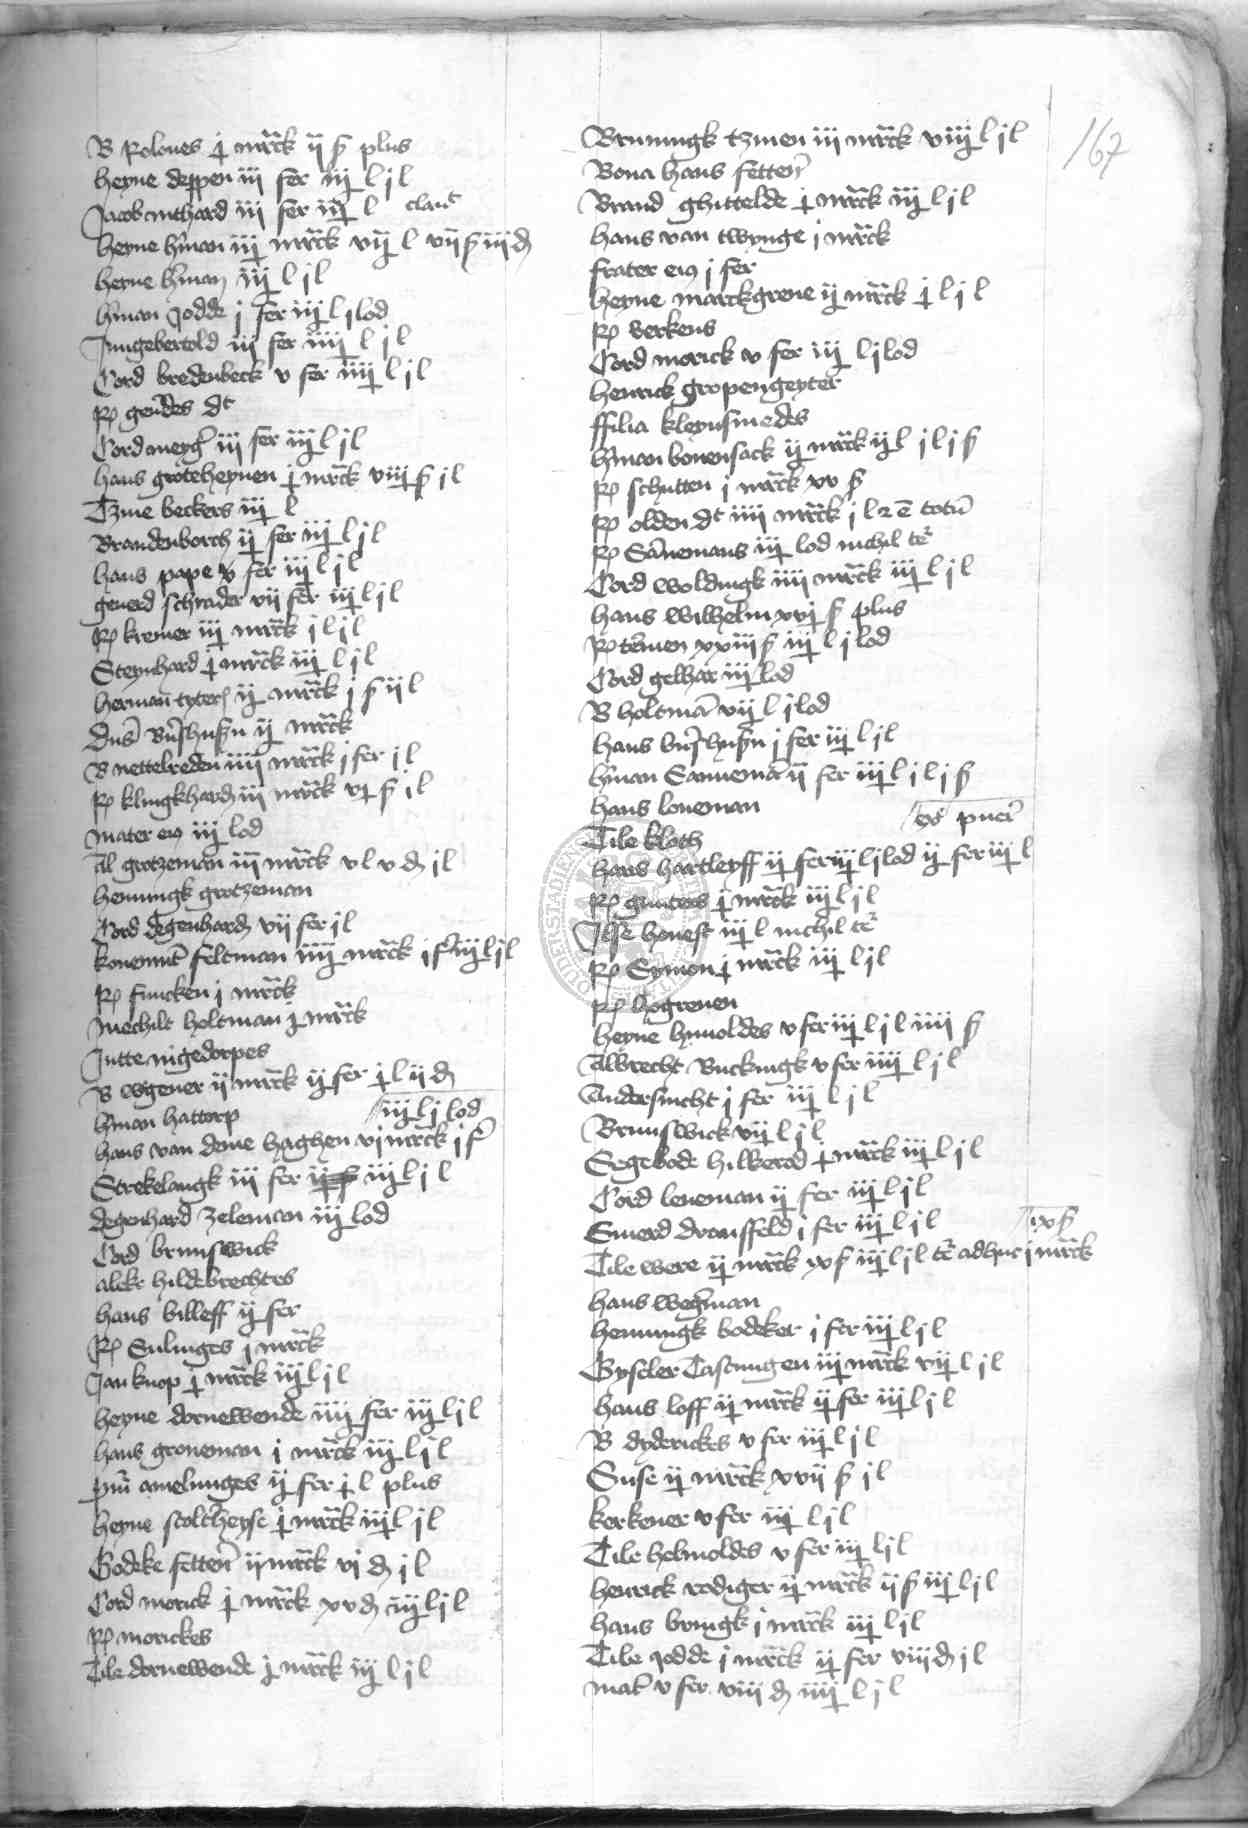 167
B Roloues j marck ij ß plus
heyne deppen iij fer iij l j l
Jacob nithard iij fer iij l claus
heyne herman iij marck vij l vij ß iij d
heyne herman iij l j l
herman Jodde j fer iij l j lod
Jungebertold iij fer iiij l j l
Cord bredenbeck v fer iiij l j l
R gerdes dt
Cord meyger iij fer iij l j l
hans groteheynen j marck viij ß j l
Tzine beckers iij l
Brandenborch ij fer iij l j l
hans pape v fer iij l j l
geuerd schrader vij fer iij l j l
R kremer iij marck j l j l
Steynhard j marck iij l j l
herman tyteres ij marck j ß ij l
ij marck
B nettelreden iiij marck j fer j l
R klingkhard iij marck vj ß j l
mater eius iij lod
Al grotzeman iij marck v l v d j l
henningk grotzeman
Cord degenhard vij fer j l
feltman iiij marck j f iij l j l
R funcken j marck
mechilt holtman j marck
Jutte nigedorpes
B wgener ij marck ij fer j l ij d
herman hattorp iij l j lod
hans van deme haghen vj marck j f
Strekelangk iij fer iij l j l
degenhard Zeleman iij lod
Cord brunswick
aleke hildebrechtes
hans billeff ij fer
R Sulinges j marck
Jan knop j marck iij l j l
heyne dornewende iiij fer iij l j l
hans groneman j marck iij l j l
amelunges ij fer j l plus
heyne stoltheyse j marck iij l j l
Godeke fetteren ij marck vj d j l
Cord morick j marck xv d iij l j l
R morickes
Tile dornewende j marck iij l j l
Bruningk tzinen iij marck viij l j l
Bona hans fetteren
Brand ghittelde j marck iij l j l
hans van twynge j marck
frater eius j fer
heyne marckgreue ij marck j l j l
R verkens
Cord morick v fer iij l j lod
henrick gropengeyter
ffilia kleynsmedes
herman bonensack ij marck ij l j l j ß
R schutten j marck xv ß
R olden dt iiij marck j l
R Sannemans iij lod nichil tenetur
Cord woldingk iiij marck iij l j l
hans wilhelm xvj ß plus
R xxiij ß iij l j lod
Cord gelhar iij lod
B holtman vij l j lod
hans j fer iij l j l
herman Sanneman ij fer iij l j l j ß
hans loueman
Tile kloth eius pueri
hans hartleyff ij fer iij l j lod ij fer iij l
R gunters j marck iij l j l
Ilse honest iij l nichil tenetur
R Symon j marck iij l j l
R hogreuen
heyne hunoldes v fer iij l j l iiij ß
Albrecht Buckingk v fer iiij l j l
Andersucht j fer iij l j l
Brunswick vij l j l
Segebode hilkerod j marck iij l j l
Cord leneman ij fer iij l j l
Euerd dransffeld j fer iij l j l ix ß
Tile were ij marck ix ß iij l j l adhuc j marck
hans wegerman
henningk bodeker j fer iij l j l
Gyseler Tastungen iij marck vij l j l
hans loff ij marck ij fer iij l j l
B dyderickes v fer iij l j l
Suse ij marck xvij ß j l
kerkener v fer iij l j l
Tile helmoldes v fer iij l j l
henrick rodiger ij marck ij ß iij l j l
hans brungk j marck iij l j l
Tile Jodde j marck ij fer viij d j l
mater v fer viij d iiij l j l